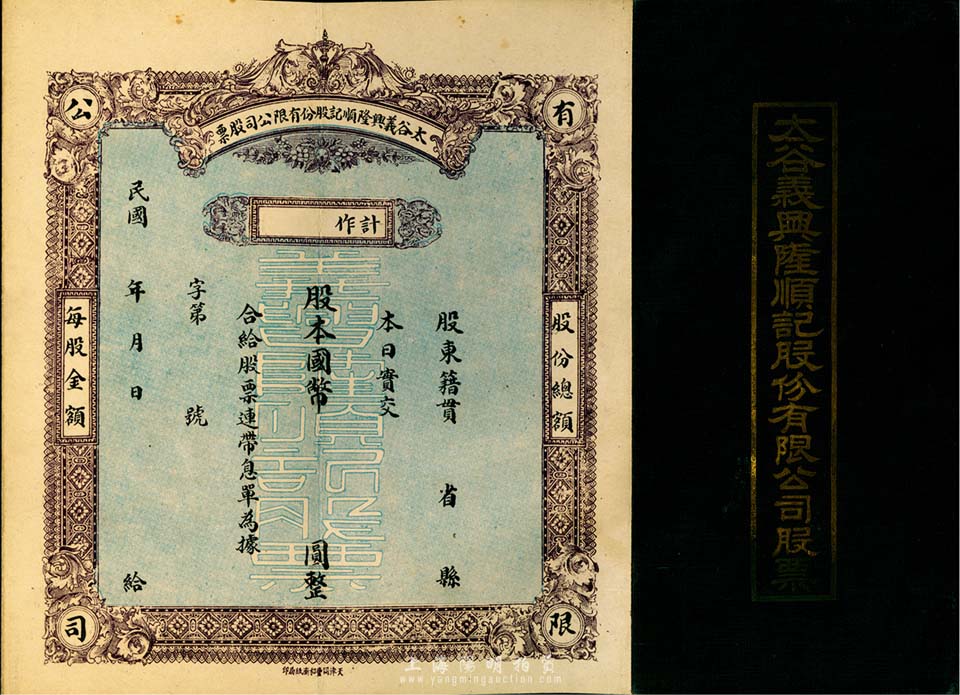 太谷義興隆順記股份有限公司股票
有
限
公
司
計作
股份總額
每股金額
股東籍貫 省 縣
本日實交
股本國幣 圓整
合給股票連帶息單為據
字第 號
民國 年 月 日 給
太谷義興隆順記股份有限公司股票
上海陽明拍賣
www.yangmingauction.com